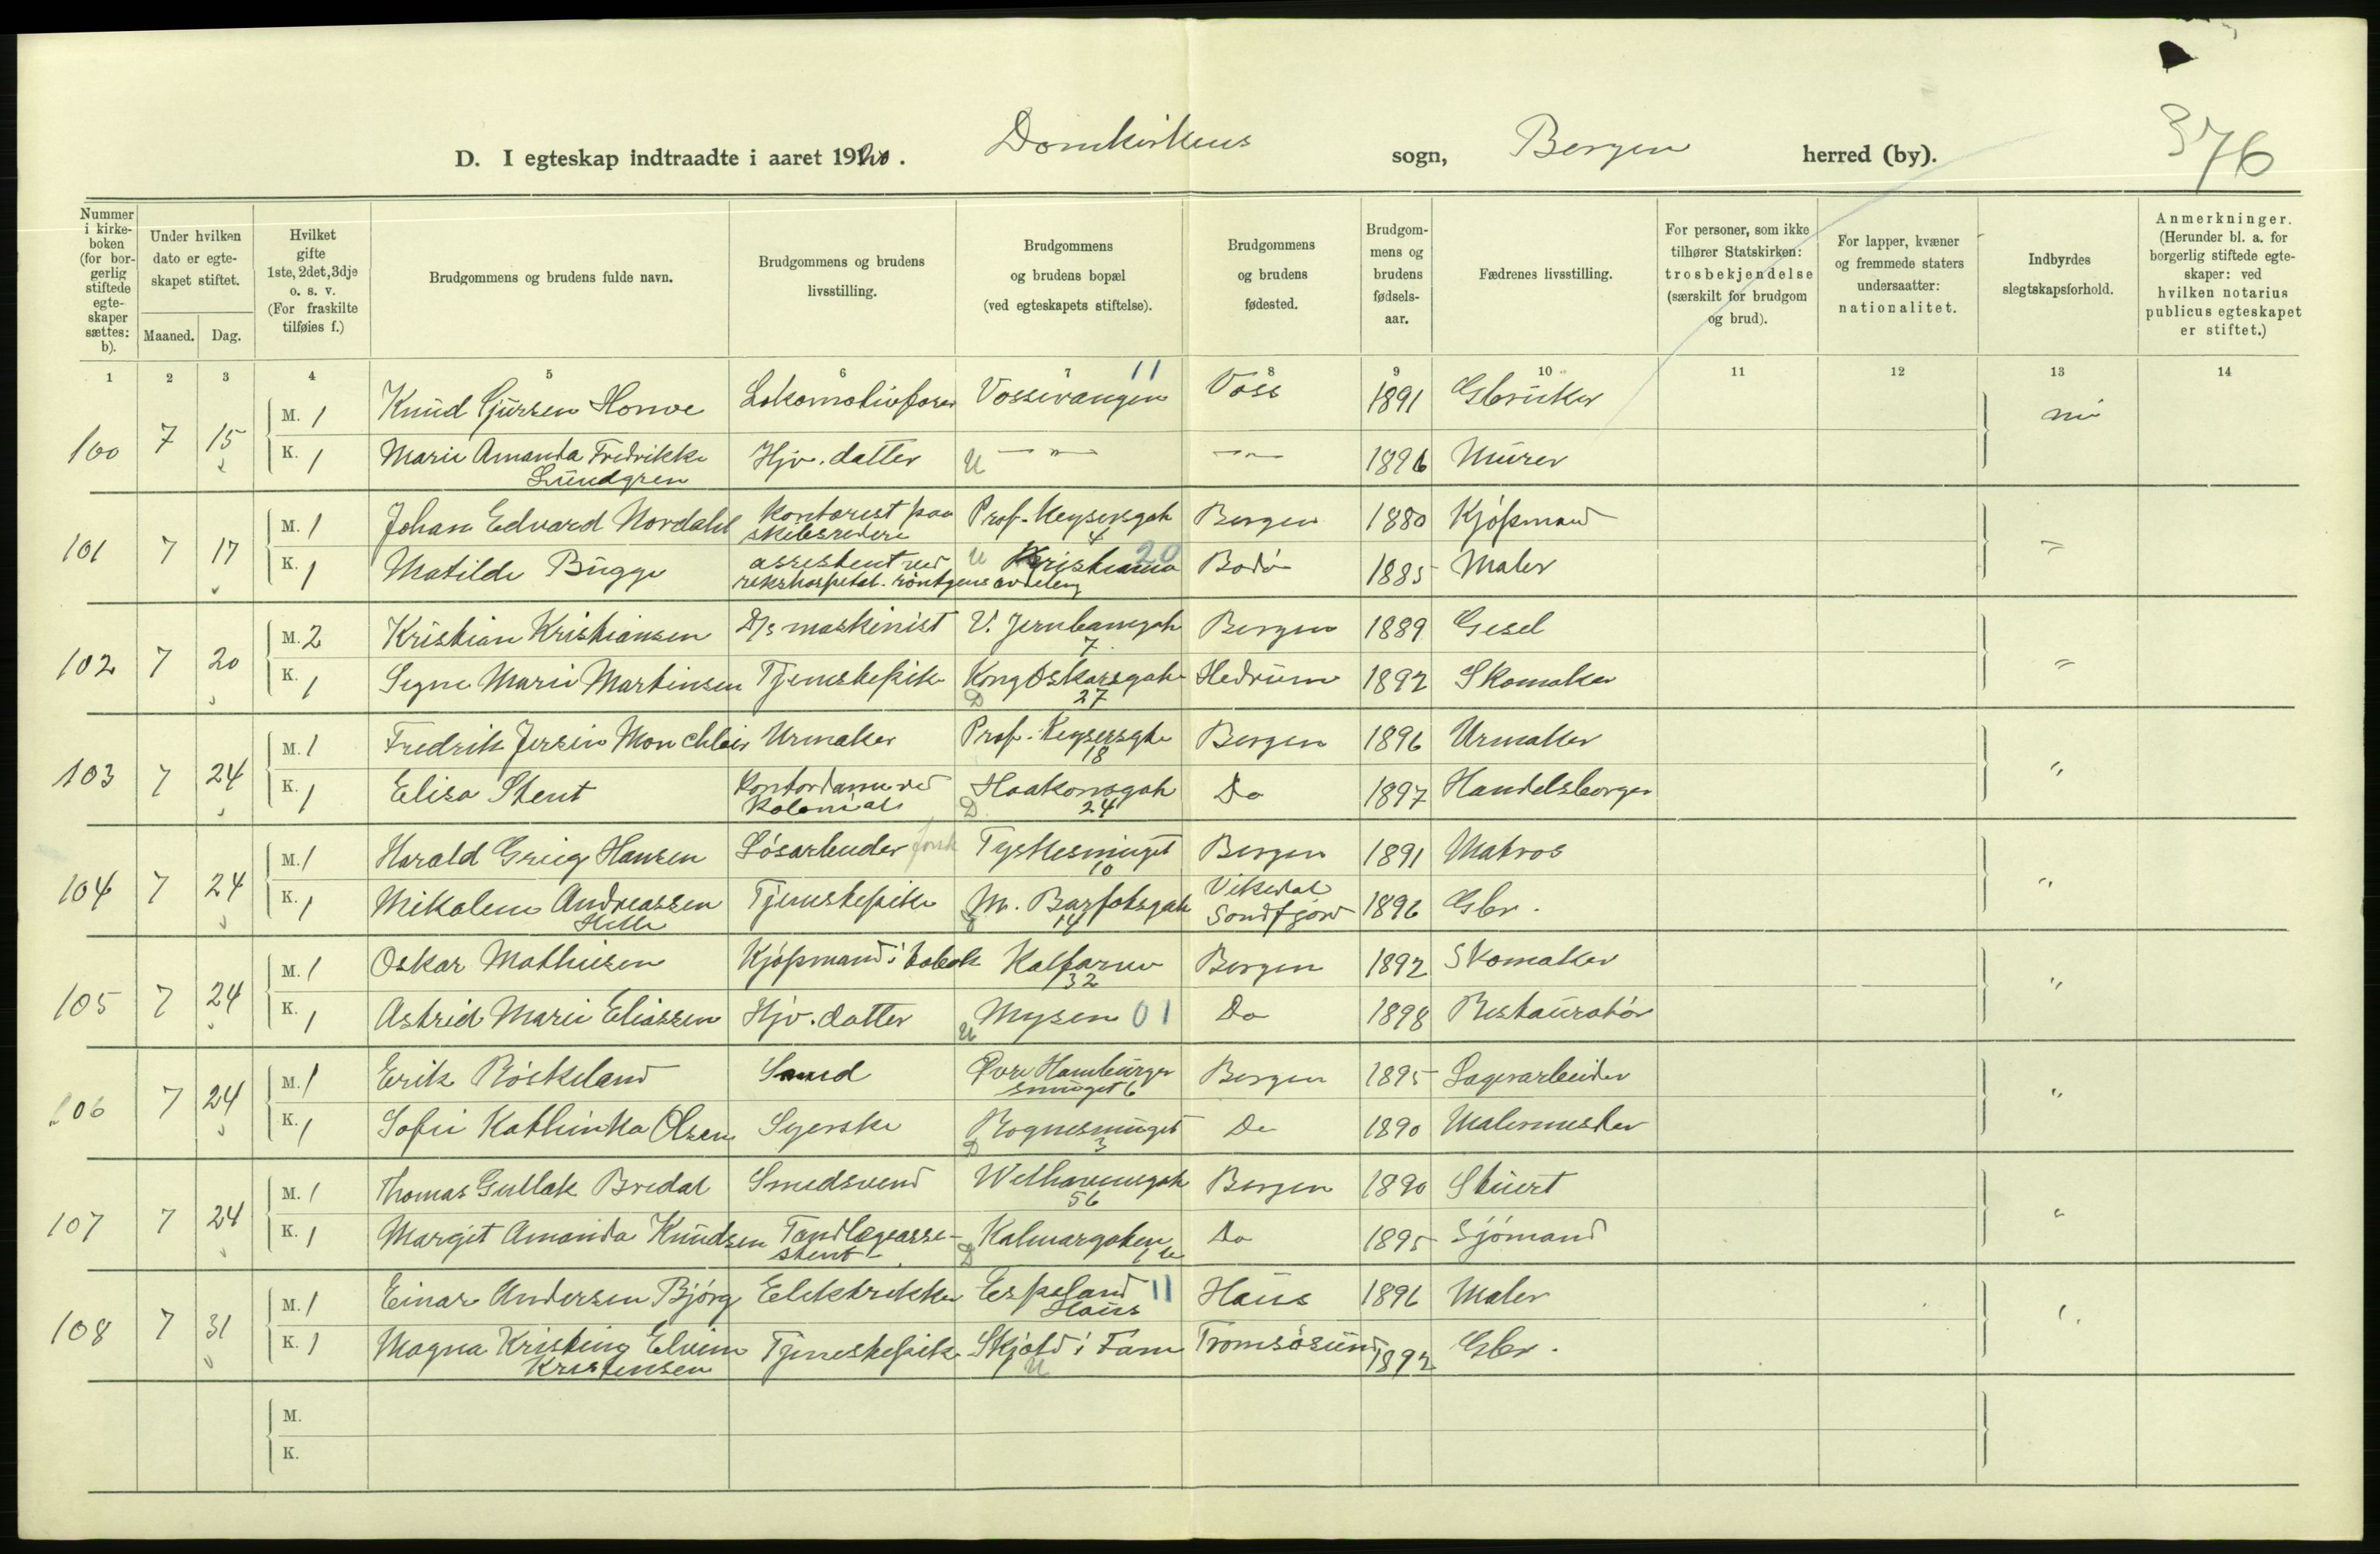 376
D. I egteskap indtraadte i aaret 1920. Domkirkens sogn, Bergen herred (by).
Nummer i kirkeboken (for borgerlig stiftede egteskaper sættes: b).
Under hvilken dato er egteskapet stiftet.
Maaned. Dag.
Hvilket gifte 1ste, 2det, 3dje o. s. v. (For fraskilte tilføies f.)
Brudgommens og brudens fulde navn.
Brudgommens og brudens livsstilling.
Brudgommens og brudens bopæl (ved egteskapets stiftelse).
Brudgommens og brudens fødested.
Brudgommens og brudens fødselsaar.
Fædrenes livsstilling.
For personer, som ikke tilhører Statskirken: trosbekjendelse (særskilt for brudgom og brud).
For lapper, kvæner og fremmede staters undersaatter: nationalitet.
Indbyrdes slegtskapsforhold.
Anmerkninger. (Herunder bl. a. for borgerlig stiftede egteskaper: ved hvilken notarius publicus egteskapet er stiftet.)
1 2 3 4 5 6 7 8 9 10 11 12 13 14
11
100 7 15 M. 1 Knud Gjursen Honve Lokomotivfører Vossevangen Voss 1891 Gbruker nei
K. 1 Marie Amanda Fredrikke Lundgren Hjv. datter U —"— —"— 1896 Murer
101 7 17 M. 1 Johan Edvard Nordahl Kontorist paa skibsrederi Prof. Keysersgate 4 Bergen 1880 Kjøpmand "
K. 1 Matilde Bugge assistent ved rikshospital. röntgensavdeling U Kristiania 20 Bodø 1885 Maler
102 7 20 M. 2 Kristian Kristiansen D/s maskinist V. Jernbanegate 7 Bergen 1889 Gesel "
K. 1 Signe Marie Martinsen Tjenestepike Kong Oskarsgate 27 D Hedrum 1892 Skomaker
103 7 24 M. 1 Fredrik Jersin Monchleir Urmaker Prof. Keysersgate 18 Bergen 1896 Urmaker "
K. 1 Elisa Stent Kontordame ved Kolonials D Haakonsgate 24 Do 1897 Handelsborger
104 7 24 M. 1 Harald Grieg Hansen Løsarbeider Tyskesmuget 10 Bergen 1891 Matros "
K. 1 Mikaline Andreassen Helle Tjenestepike M. Barfotsgate 14 Vikedal Søndfjord 1896 Gbr.
105 7 24 M. 1 Oskar Mathisen Kjøpmand i tobak Kalfarvei 32 Bergen 1892 Skomaker "
K. 1 Astrid Marie Eliassen Hjv. datter U Mysen 01 Do 1898 Restauratør
106 7 24 M. 1 Erik Røskeland Smed Øvre Hamburger smuget 6 Bergen 1895 Lagerarbeider "
K. 1 Sofie Kathinka Olsen Syerske D Rognesmuget 3 Do 1890 Malermester
107 7 24 M. 1 Thomas Gullak Bredal Smedsvend Welhavensgate 56 Bergen 1890 Stuert "
K. 1 Margit Amanda Knudsen Tandlægeassistent D Kalmargaten Do 1895 Sjømand
108 7 31 M. 1 Einar Andersen Bjørg Elektriker Espeland Haus 11 Haus 1896 Maler "
K. 1 Magna Kristine Elvine Kristensen Tjenestepike U Skjold i Fane Tromsøsund 1892 Gbr.
M.
K.